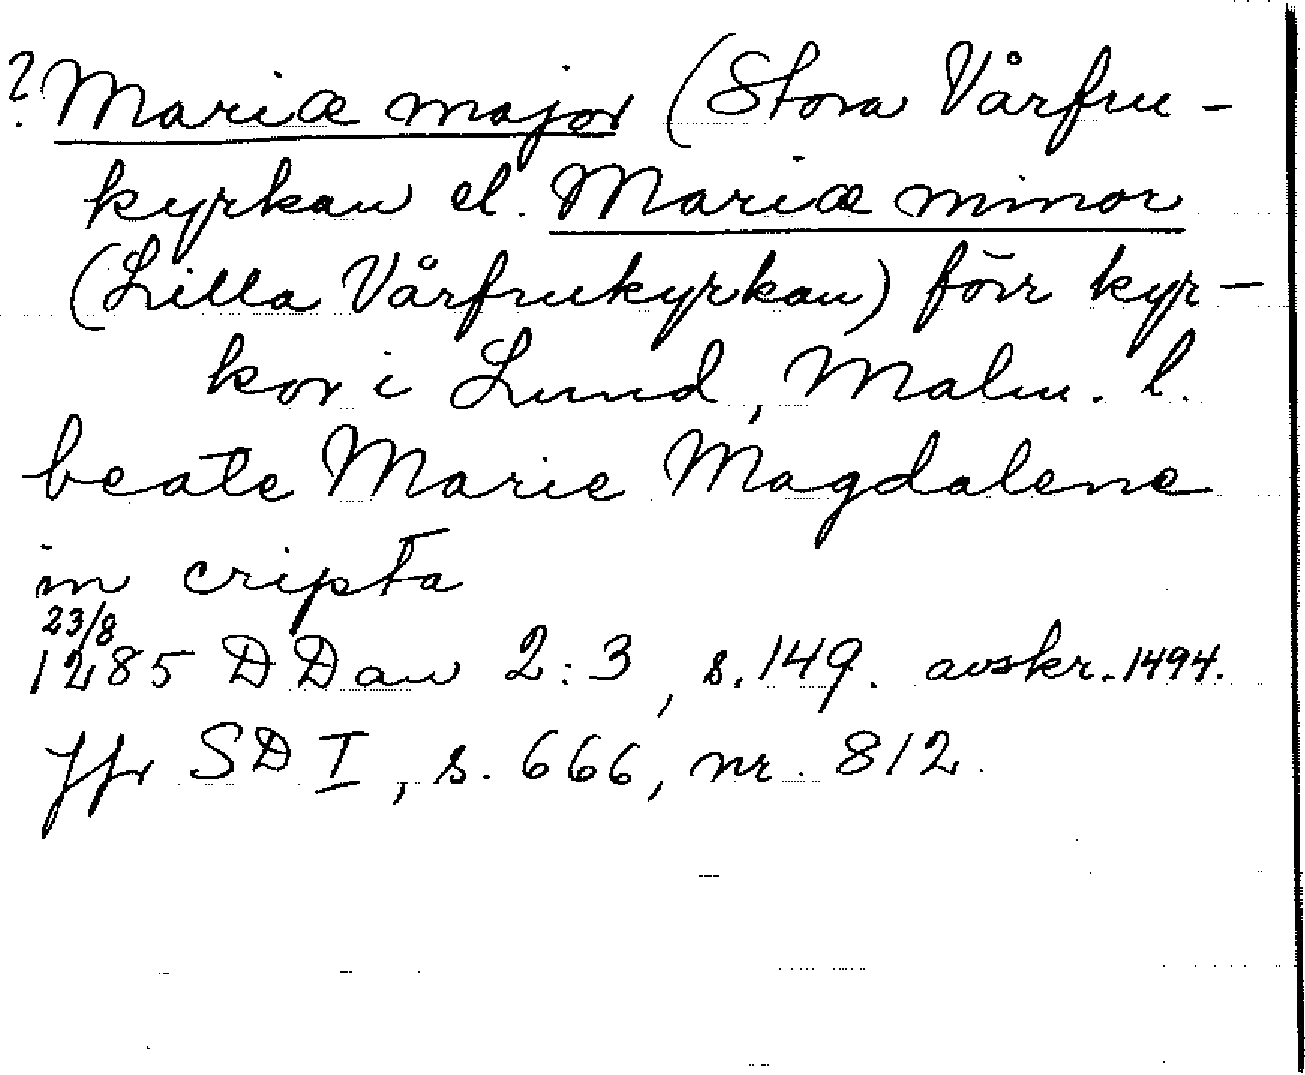 ? Mariæ major (Stora Vårfru-
kyrkan el. Mariæ minor
(Lilla Vårfrukyrkan) förr kyr-
kor i Lund, Malm. l.
beate Marie Magdalene
in cripta
23/8
1285 DDan 2:3, s. 149. avskr. 1494.
Jfr SD I, s. 666, nr. 812.